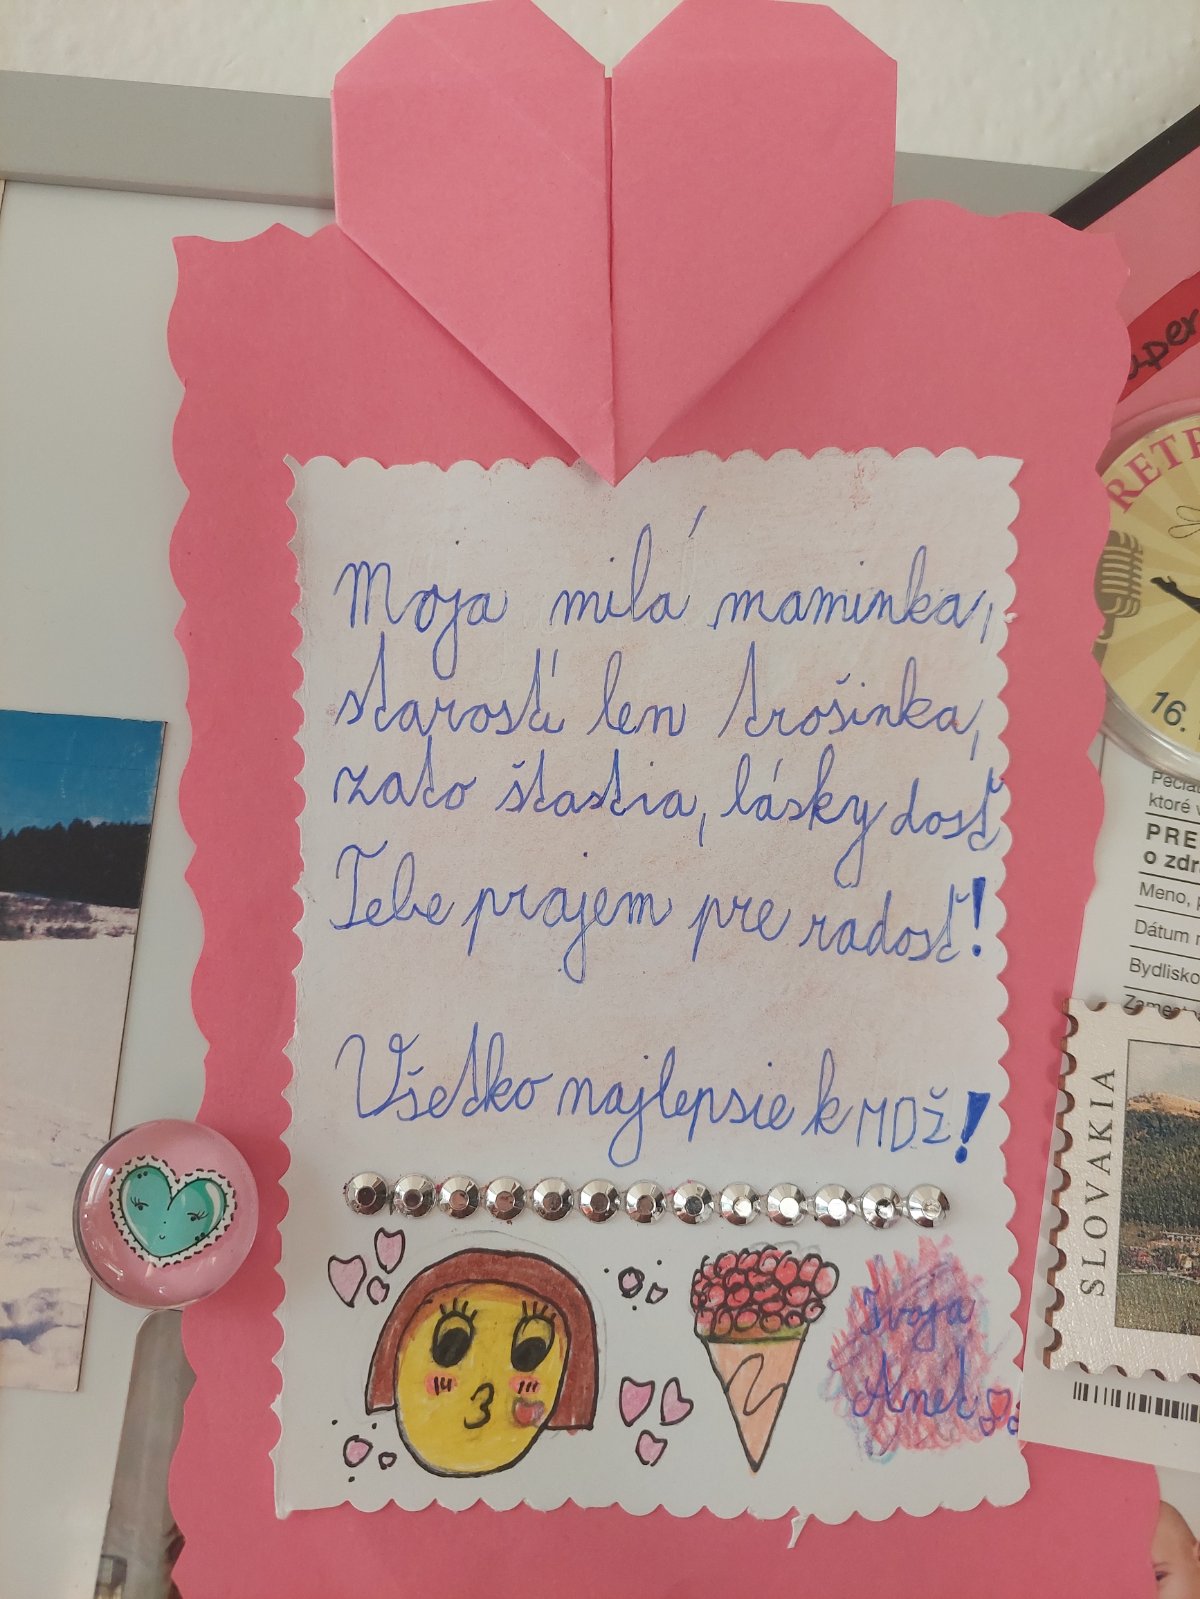 Moja milá maminka,
starostí len trošinka,
zato štastia, lásky dosť
Tebe prajem pre radosť!
Všetko najlepsie k MDŽ!
Tvoja
RETR
16.
Pečiat
ktoré v
PRE
o zdr
Meno, p
Dátum n
Bydlisko
SLOVAKIA